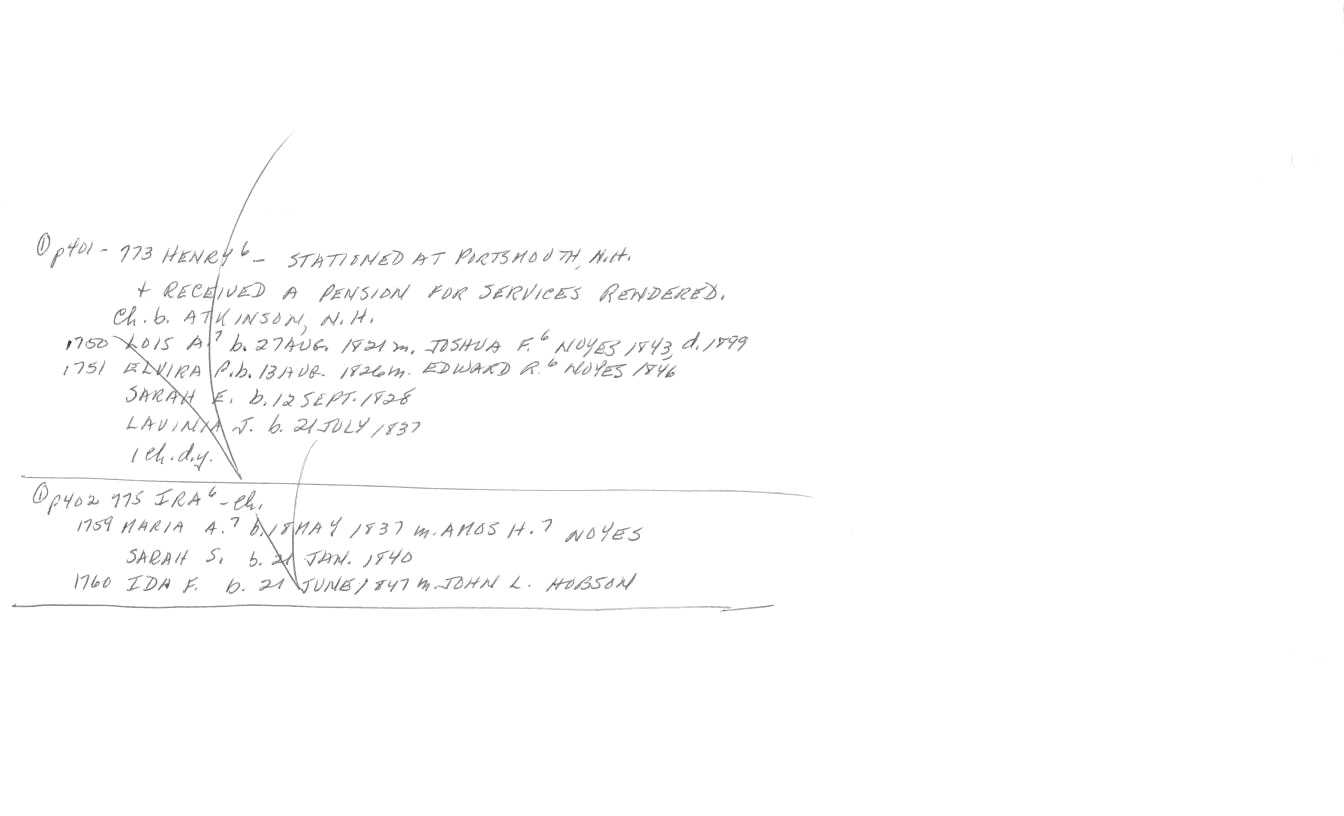 ① p401 - 773 HENRY⁶ - STATIONED AT PORTSMOUTH, N.H.
+ RECEIVED A PENSION FOR SERVICES RENDERED.
Ch. b. ATKINSON, N.H.
1750 LOIS A.⁷ b. 27 AUG. 1821 m. JOSHUA F.⁶ NOYES 1843, d. 1899
1751 ELVIRA P. b. 13 AUG. 1826 m. EDWARD R.⁶ NOYES 1846
SARAH E. b. 12 SEPT. 1828
LAVINIA J. b. 21 JULY 1837
1 Ch. d.y.
① p402 775 IRA⁶ - Ch.
1759 MARIA A.⁷ b. 18 MAY 1837 m. AMOS H.⁷ NOYES
SARAH S. b. 21 JAN. 1840
1760 IDA F. b. 21 JUNE 1847 m. JOHN L. HOBSON